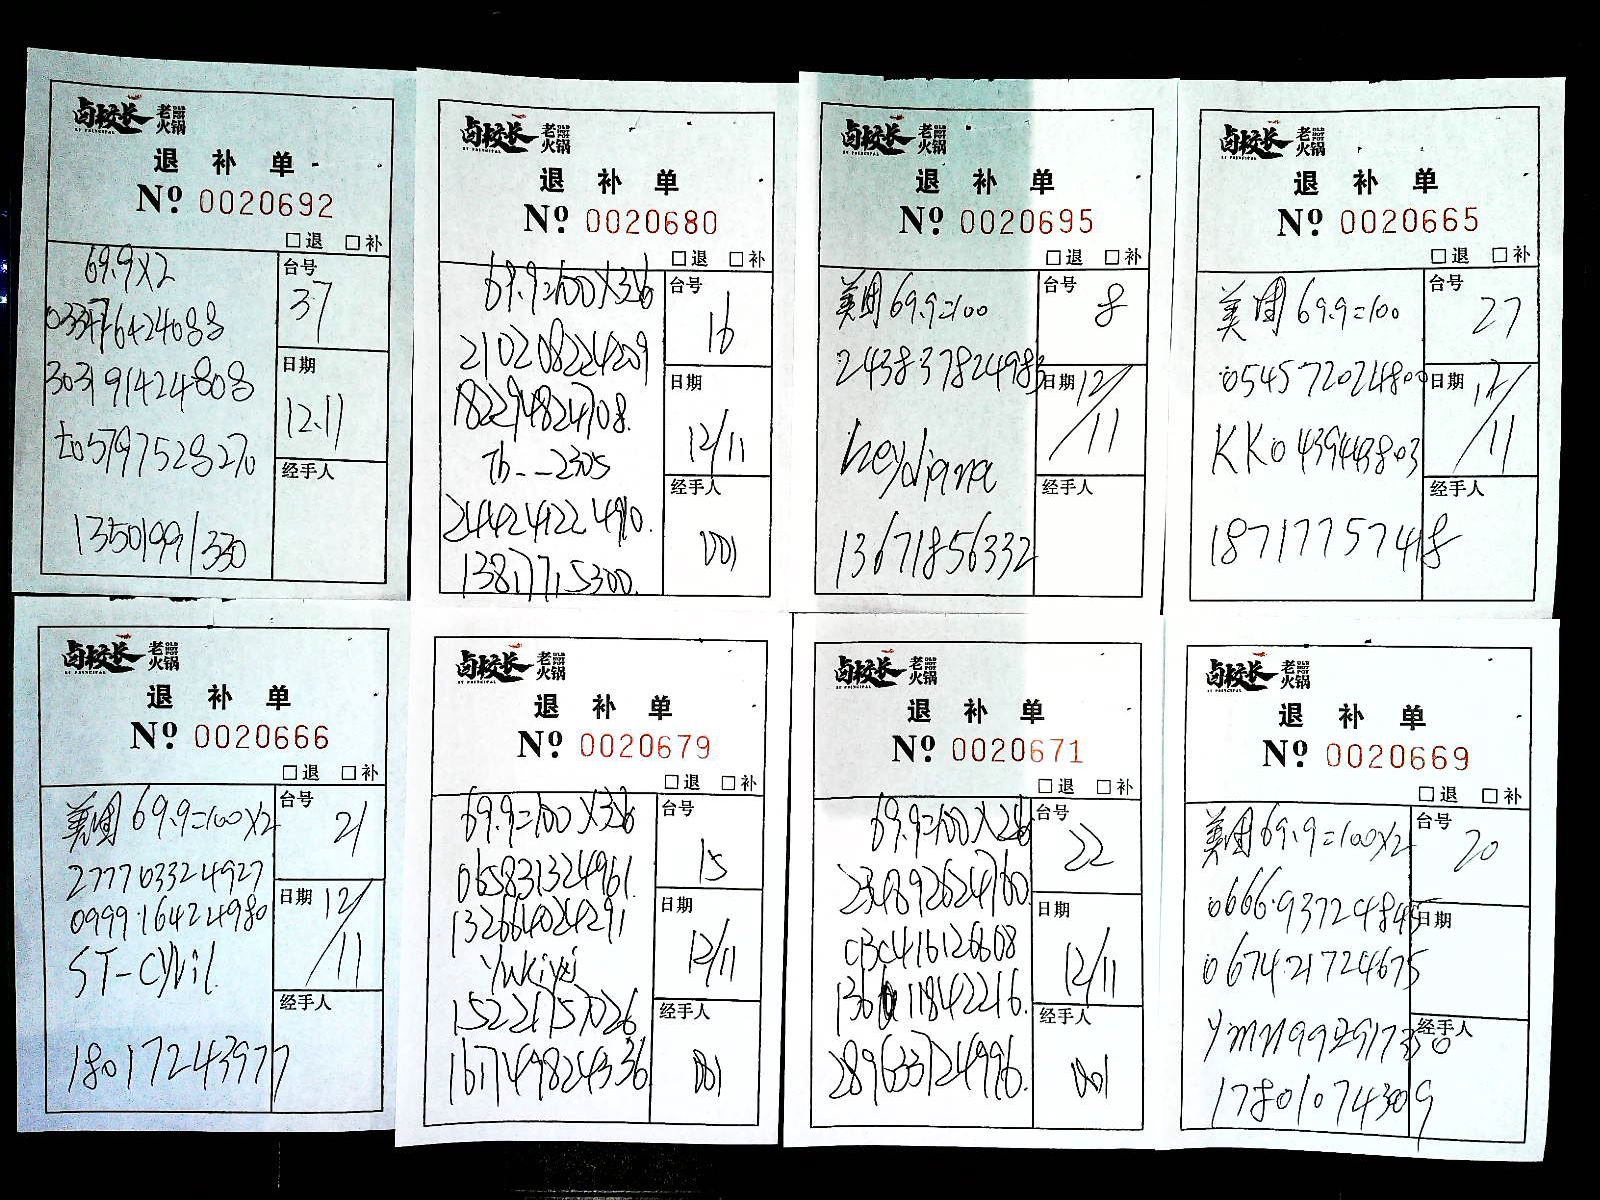 卤校长 老火锅
退补单
No. 0020692
□退 □补
69.9X2
台号
37
033476424088
303191424808
日期
12.11
t05797528270
经手人
13501991330
卤校长 老火锅
退补单
No. 0020680
□退 □补
69.9=100X3张
台号
16
210208224209
182294824708.
日期
12/11
Tb--2305
244242122490.
经手人
001
13817715300.
卤校长 老火锅
退补单
No. 0020695
□退 □补
美团69.9=100
台号
8
243837824983
日期
12/11
heydiana
经手人
13671856332
卤校长 老火锅
退补单
No. 0020665
□退 □补
美团69.9=100
台号
27
054572024800
日期
12/11
KK0439443803
经手人
18717757418
卤校长 老火锅
退补单
No. 0020666
□退 □补
美团69.9=100X2
台号
21
277763324927
099916424980
日期
12/11
ST-CYVil
经手人
18017243977
卤校长 老火锅
退补单
No. 0020679
□退 □补
69.9=100X3张
台号
15
065831324961.
132664024291
日期
12/11
Yukiyxi
15221757026
经手人
001
161749824336
卤校长 老火锅
退补单
No. 0020671
□退 □补
69.9=100X2张
台号
22
234892624760.
日期
12/11
CBC416126608
13611842216.
经手人
001
289633724996.
卤校长 老火锅
退补单
No. 0020669
□退 □补
美团69.9=100X2
台号
20
066693724845
日期
067421724675
经手人
17801074309